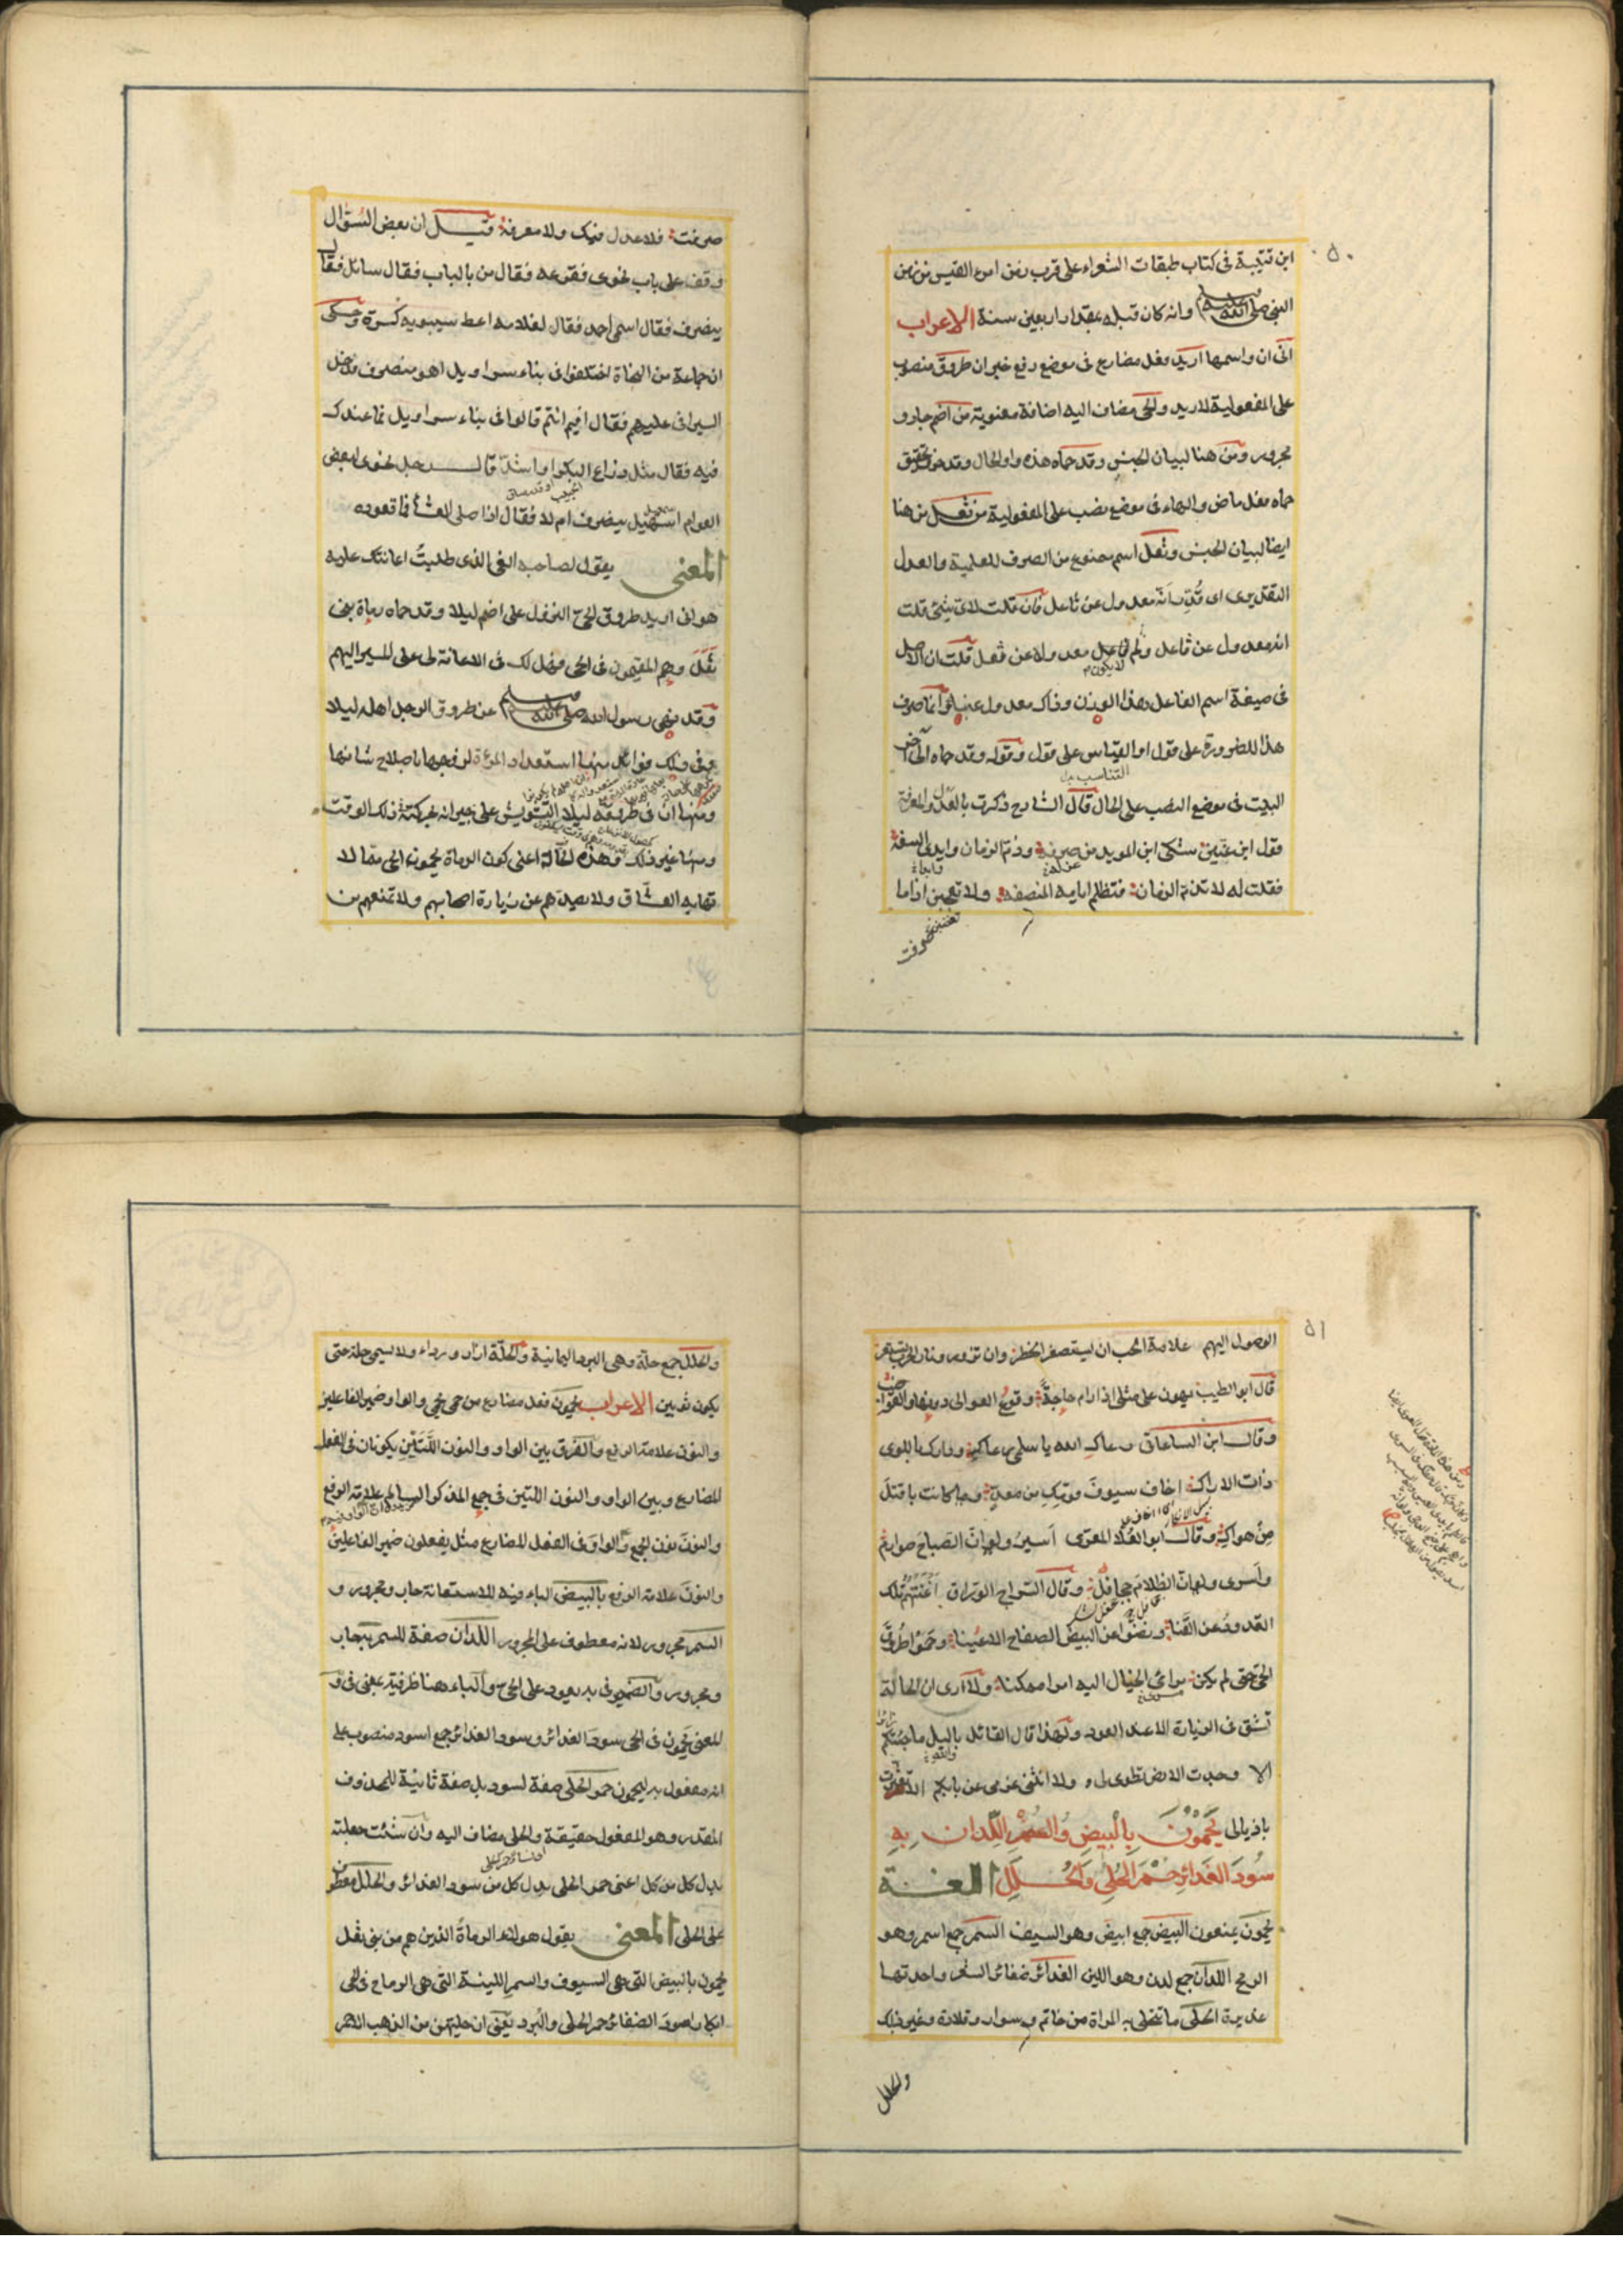 ٥٠
ابن قتيبة فى كتاب طبقات الشعراء على قرب زمن امرء القيس من زمن
النبى صلى الله عليه وسلم وانه كان قبله بمقدار اربعين سنة الاعراب
انى ان واسمها اريد فعل مضارع فى موضع رفع خبر ان طروق منصوب
على المفعولية لاريد والحى مضاف اليه اضافة معنوية من اضم جار و
مجرور ومن هنا لبيان الجنس وقد حماه هذه واو الحال وقد حرف تحقيق
حماه فعل ماض والهاء فى موضع نصب على المفعولية من ثعل من هنا
ايضا لبيان الجنس وثعل اسم ممنوع من الصرف للعلمية والعدل
التقديرى اى قدّر انه معدول عن ثاعل فان قلت لاى شئ قلت
انه معدول عن ثاعل ولم لا يكون ثاعل معدولا عن ثعل قلت ان الاصل
فى صيغة اسم الفاعل هذا الوزن وذاك معدول عنه
هذا للضرورة على قول او القياس على قول وقوله وقد حماه الى آخر
البيت فى موضع النصب على الحال قال الشارح ذكرت بالعدل والمعرفة
قول ابن عنين شكى ابن المويد من صرفه وذم الزمان وابدى السفه
فقلت له لا تذم الزمان فتظلم ايامه المنصفه ولا تعجبن اذا ما
صرفت
صرفت فلا عدل فيك ولا معرفة قيل ان بعض السؤال
وقف على باب نحوى فقرعه فقال من بالباب فقال سائل فقال
ينصرف فقال اسمى احمد فقال لغلامه اعط سيبويه كسرة وحكى
ان جماعة من النحاة اختلفوا فى بناء سراويل اهو منصرف فدخل
السيرافى عليهم فقال افيم انتم قالوا فى بناء سراويل فما عندك
فيه فقال مثل ذراع البكر او اشد قال رجل نحوى لبعض
العوام اسهيل ينصرف ام لا فقال اذا صلى العشاء فاقعوده
المعنى يقول لصاحبه الغى الذى طلبت اعانتك عليه
هو انى اريد طروق الحى النزل على اضم ليلا وقد حماه رماة بنى
ثعل وهم المقيمون فى الحى فهل لك فى الاعانة لى على المسير اليهم
وقد نهى رسول الله صلى الله عليه وسلم عن طروق الرجل اهله ليلا
وفى ذلك فوائد منها استعداد المرءة لزوجها باصلاح شانها
ومنها ان فى طروقه ليلا التشويش على جيرانه بحركته ذلك الوقت
ومنها غير ذلك وهذه الحالة اعنى كون الرماة يحمون الحى مما لا
تهابه العشاق ولا يصدهم عن زيارة احبابهم ولا تمنعهم من
٥١
الوصول اليهم علامة الحب ان يستصغر الخطر وان تزور ونار الحرب تستعر
قال ابو الطيب يهون على مثلى اذا رام حاجة وقوع العوالى دونها والقواضب
وقال ابن الساعاتى رعاك الله يا سلمى رعاك ودارك باللوى
ذات الاراك اخاف سيوف قومك من معد وما كانت باقتل
من هواك وقال ابو العلا المعرى اسير ولو ان الصباح صوارم
واسرى ولو ان الظلام جحافل وقال السراج الوراق اغنتهم تلك
القدود عن القنا ونضوا عن البيض الصفاح الاعينا وحموا طروق
الحى حتى لم يكن مرائى الخيال اليه امرا ممكنا ولا ارى ان الحالة
تشق فى الزيارة الا عند العود ولهذا قال القائل بالليل ما جئتكم
الا وجدت الارض تطوى لى ولا انثنى عزمى عن بابكم الا تعثرت
باذيالى يَحْمُوْنَ بِالْبِيضِ وَالسُّمْرِ اللِّدَانِ بِهِ
سُودَ الغَدائِرِ حُمْرَ الحُلِىِّ وَالحُلَلِ اللغة
يحمون يمنعون البيض جمع ابيض وهو السيف السمر جمع اسمر وهو
الرمح اللدان جمع لدن وهو اللين الغدائر ضفائر الشعر واحدتها
غديرة الحلى ما تتحلى به المراة من خاتم وسوار وقلادة وغير ذلك
والحلل
والحلل جمع حلة وهى البرد اليمانية والحلة ازار ورداء ولا يسمى حلة حتى
يكون ثوبين الاعراب يحمون فعل مضارع من حمى يحمى والواو ضمير الفاعلين
والنون علامة الرفع والفرق بين الواو والنون اللتين يكونان فى الفعل
المضارع وبين الواو والنون اللتين فى جمع المذكر السالم علامة الرفع
والنون نون الجمع والواو فى الفعل المضارع مثل يفعلون ضمير الفاعلين
والنون علامة الرفع بالبيض الباء فيه للاستعانة جار ومجرور و
السمر مجرور لانه معطوف على المجرور اللدان صفة للسمر به جار
ومجرور والضمير فى به يعود على الحى والباء هنا ظرفية بمعنى فى و
المعنى يحمون فى الحى سود الغدائر وسود الغدائر جمع اسود منصوب على
انه مفعول به ليحمون حمر الحلى صفة لسود بل صفة ثانية للمحذوف
المقدر وهو المفعول حقيقة والحلى مضاف اليه وان شئت جعلته
بدل كل من كل اعنى حمر الحلى بدل كل من سود الغدائر والحلل معطوف
على الحلى المعنى يقول هولاء الرماة الذين هم من بنى ثعل
يحمون بالبيض التى هى السيوف والسمر اللينة التى هى الرماح فى الحى
ابكارا سود الضفائر حمر الحلى والبرد يعنى ان حليتهن من الذهب الاحمر